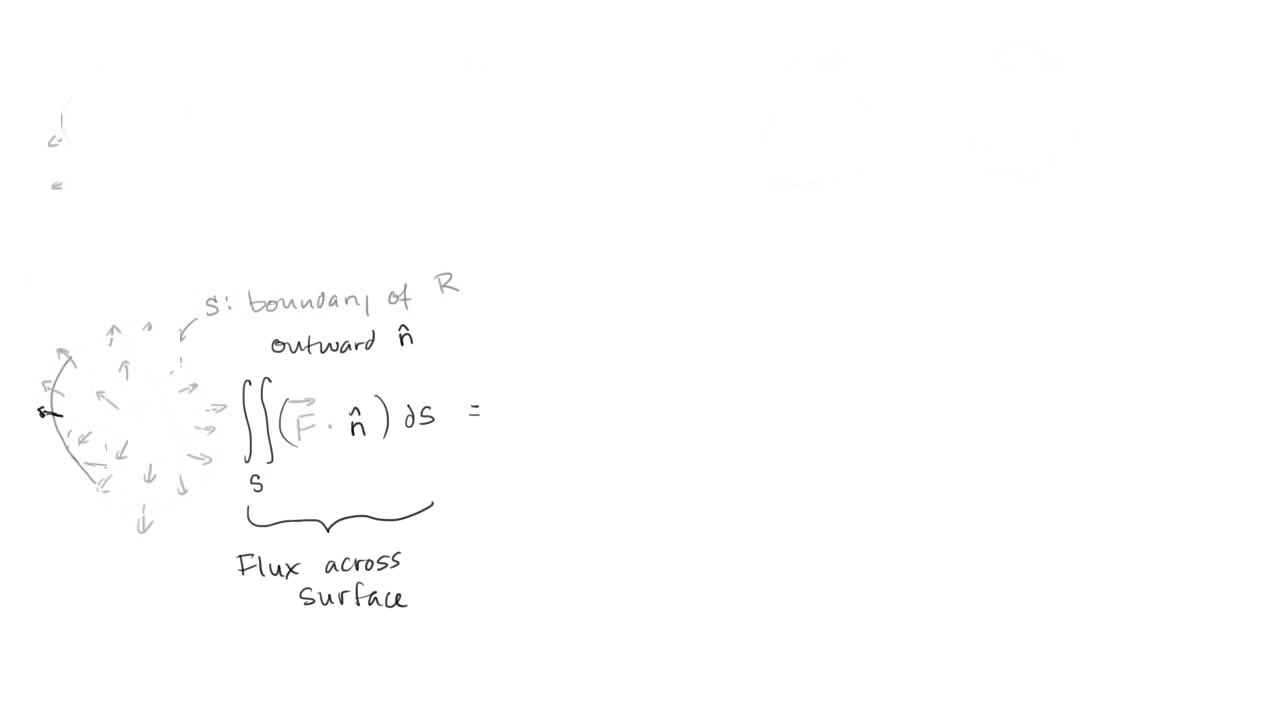 S: boundary of R
outward n̂
∬(F⃗ · n̂) dS =
S
Flux across
surface